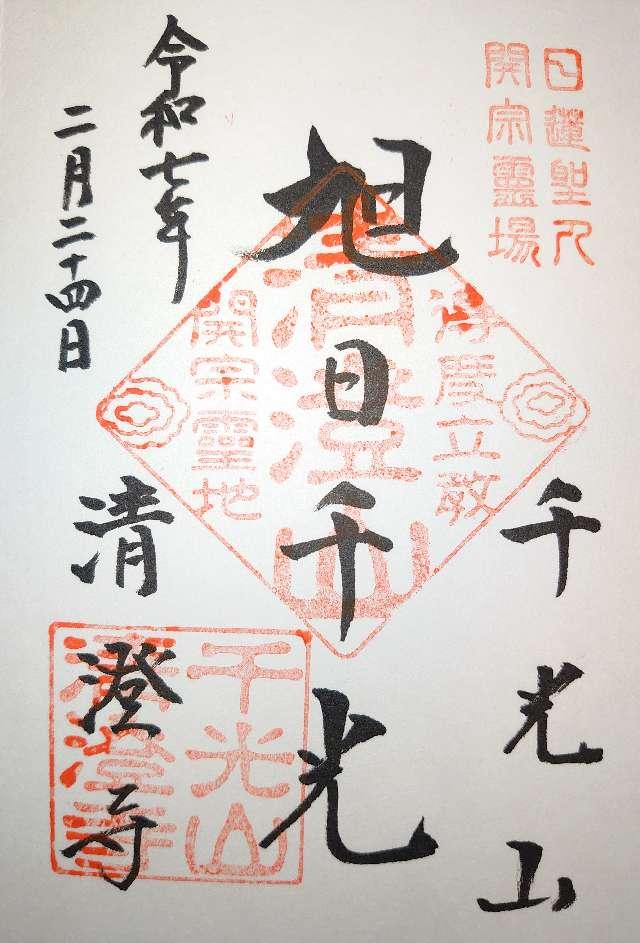 日蓮聖人
開宗靈場
千光山
旭日千光
済度立教
清澄山
開宗霊地
令和七年
二月二十四日
清澄寺
千光山
清澄寺